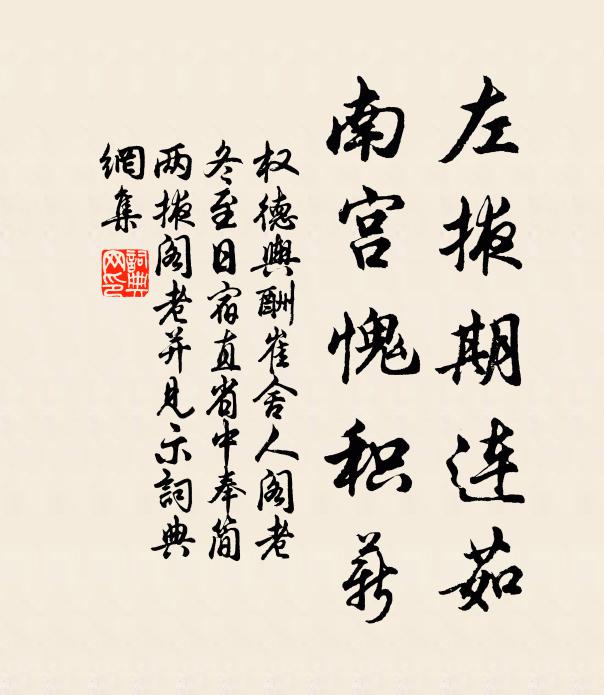 左掖期连茹
南宫愧积薪
权德舆酬崔舍人阁老
冬至日宿直省中奉简
两掖阁老并见示詞典
網集
詞典
网印